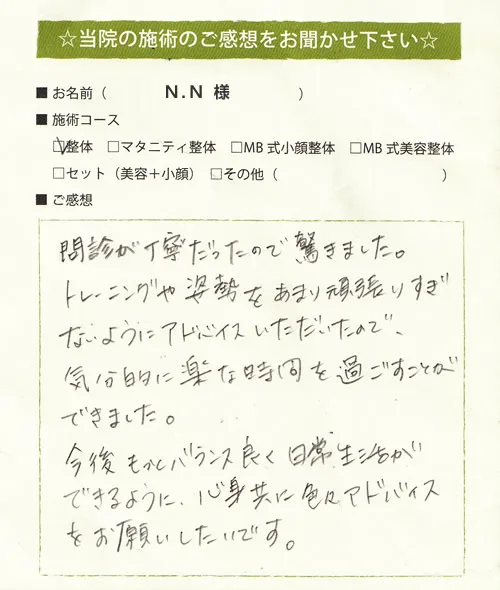 ☆当院の施術のご感想をお聞かせ下さい☆
■お名前（ N.N 様 ）
■施術コース
☑整体 □マタニティ整体 □MB式小顔整体 □MB式美容整体
□セット（美容＋小顔） □その他（ ）
■ご感想
問診が丁寧だったので驚きました。
トレーニングや姿勢をあまり頑張りすぎ
ないようにアドバイスいただいたので、
気分的に楽な時間を過ごすことが
できました。
今後もっとバランス良く日常生活が
できるように、心身共に色々アドバイス
をお願いしたいです。